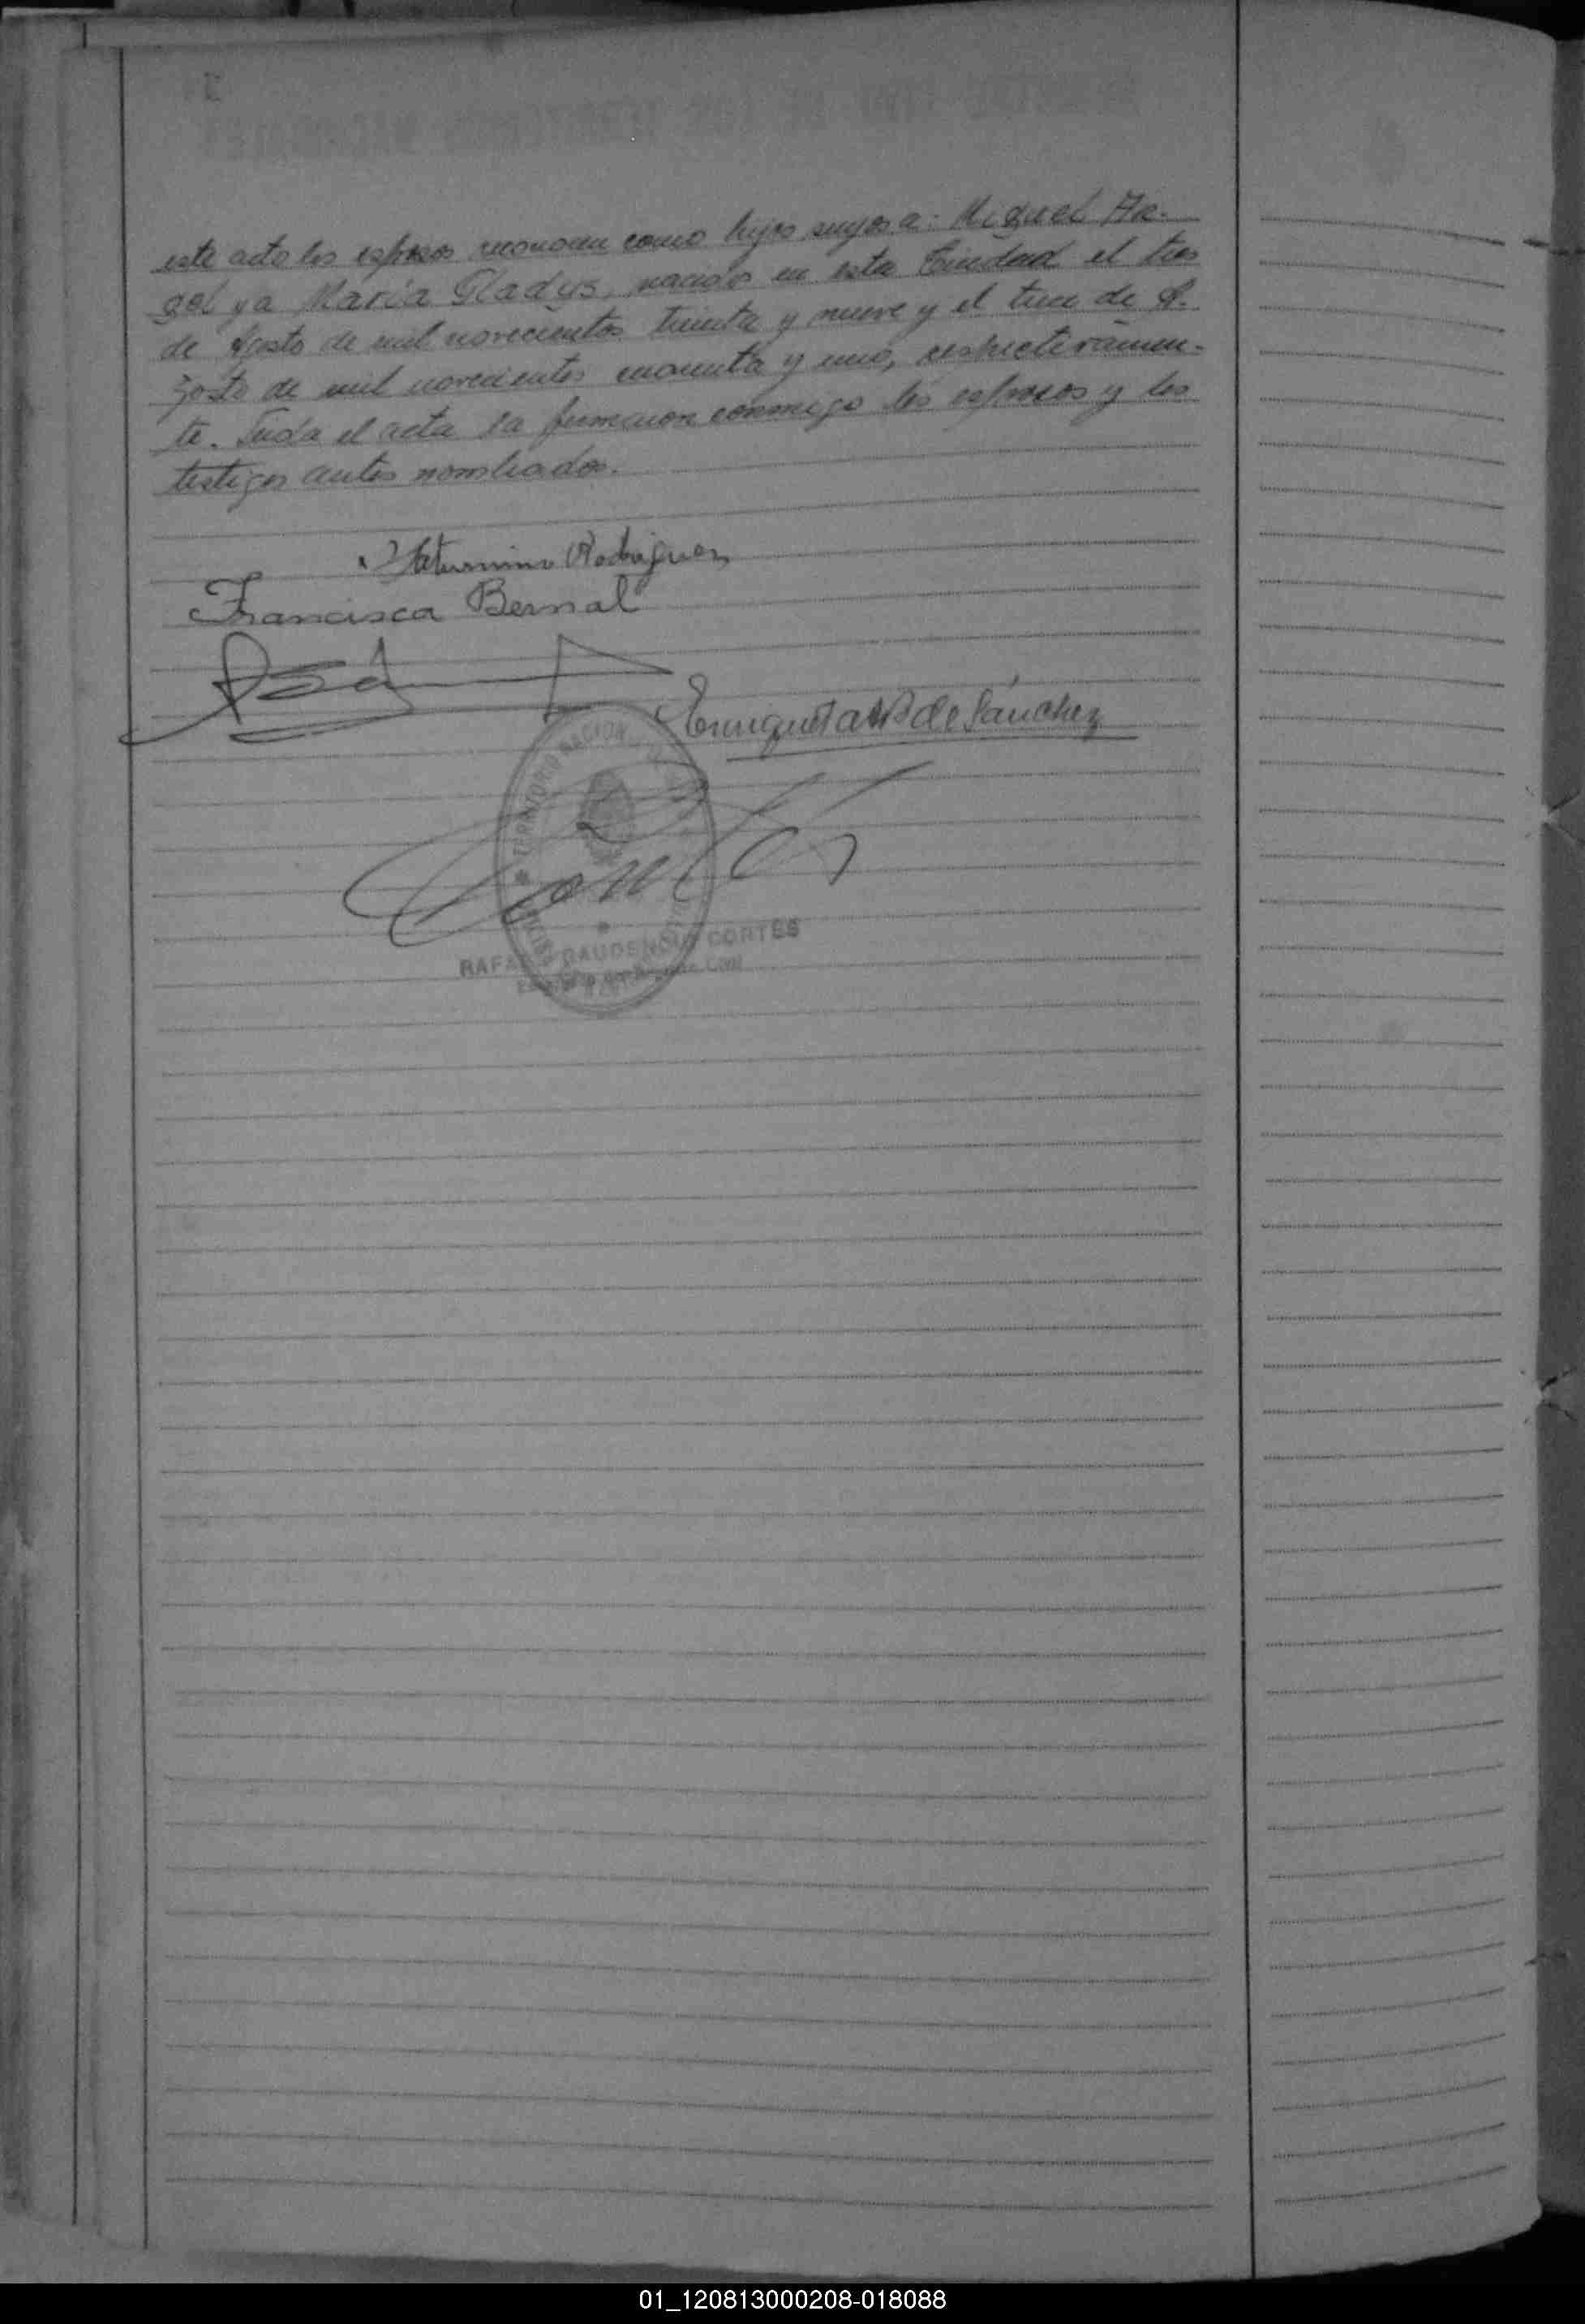 este acto los esposos reconocen como hijos suyos a: Miguel An-
gel y a María Gladys, nacidos en esta Ciudad el tres
de Agosto de mil novecientos treinta y nueve y el trece de A-
gosto de mil novecientos cuarenta y uno, respectivamen-
te. Leída el acta la firmaron conmigo los esposos y los
testigos antes nombrados.
Saturnino Rodriguez
Francisca Bernal
Enriqueta de Sánchez
TERRITORIO NACIONAL
RAFAEL GAUDENCIO CORTES
Registro Civil
01_120813000208-018088